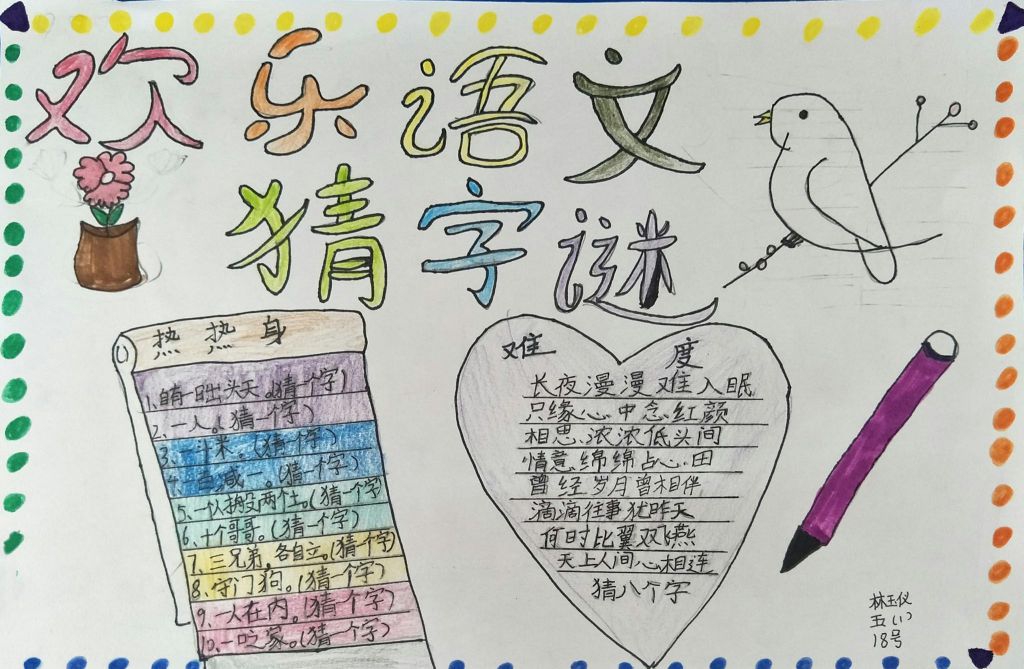 欢乐语文
猜字谜
热热身
1、自有一日出头天。(猜一个字)
2、一人。(猜一个字)
3、一斗米。(猜一个字)
一百减一。(猜一个字)
5、一以搬没两个土。(猜一个字
6、十个哥哥。(猜一个字)
7、三兄弟,各自立。(猜个字)
8、守门狗。(猜一个字)
9、一人在内。(猜一个字)
10、一口之家。(猜一个字)
难度
长夜漫漫难入眠
只缘心中念红颜
相思浓浓低头间
情意绵绵占心田
曾经岁月曾相伴
滴滴往事犹昨天
何时比翼双飞燕
天上人间心相连
猜八个字
林玉仪
五(1)
18号